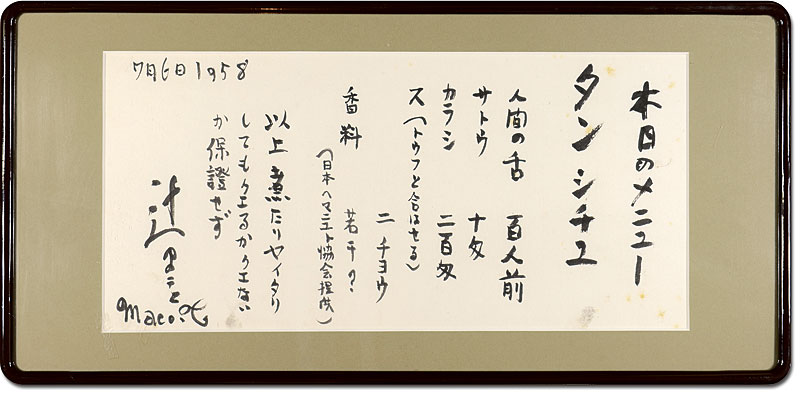 本日のメニュー
タンシチュ
人間の舌 百人前
サトウ 十匁
カラシ 二百匁
ス(トウフと合はせる) 二チヨウ
香料 若干?
(日本ヘマニエト協会提供)
以上煮たりヤイタリ
してもクエるかクエない
か保證せず
辻
maco
7月6日1958